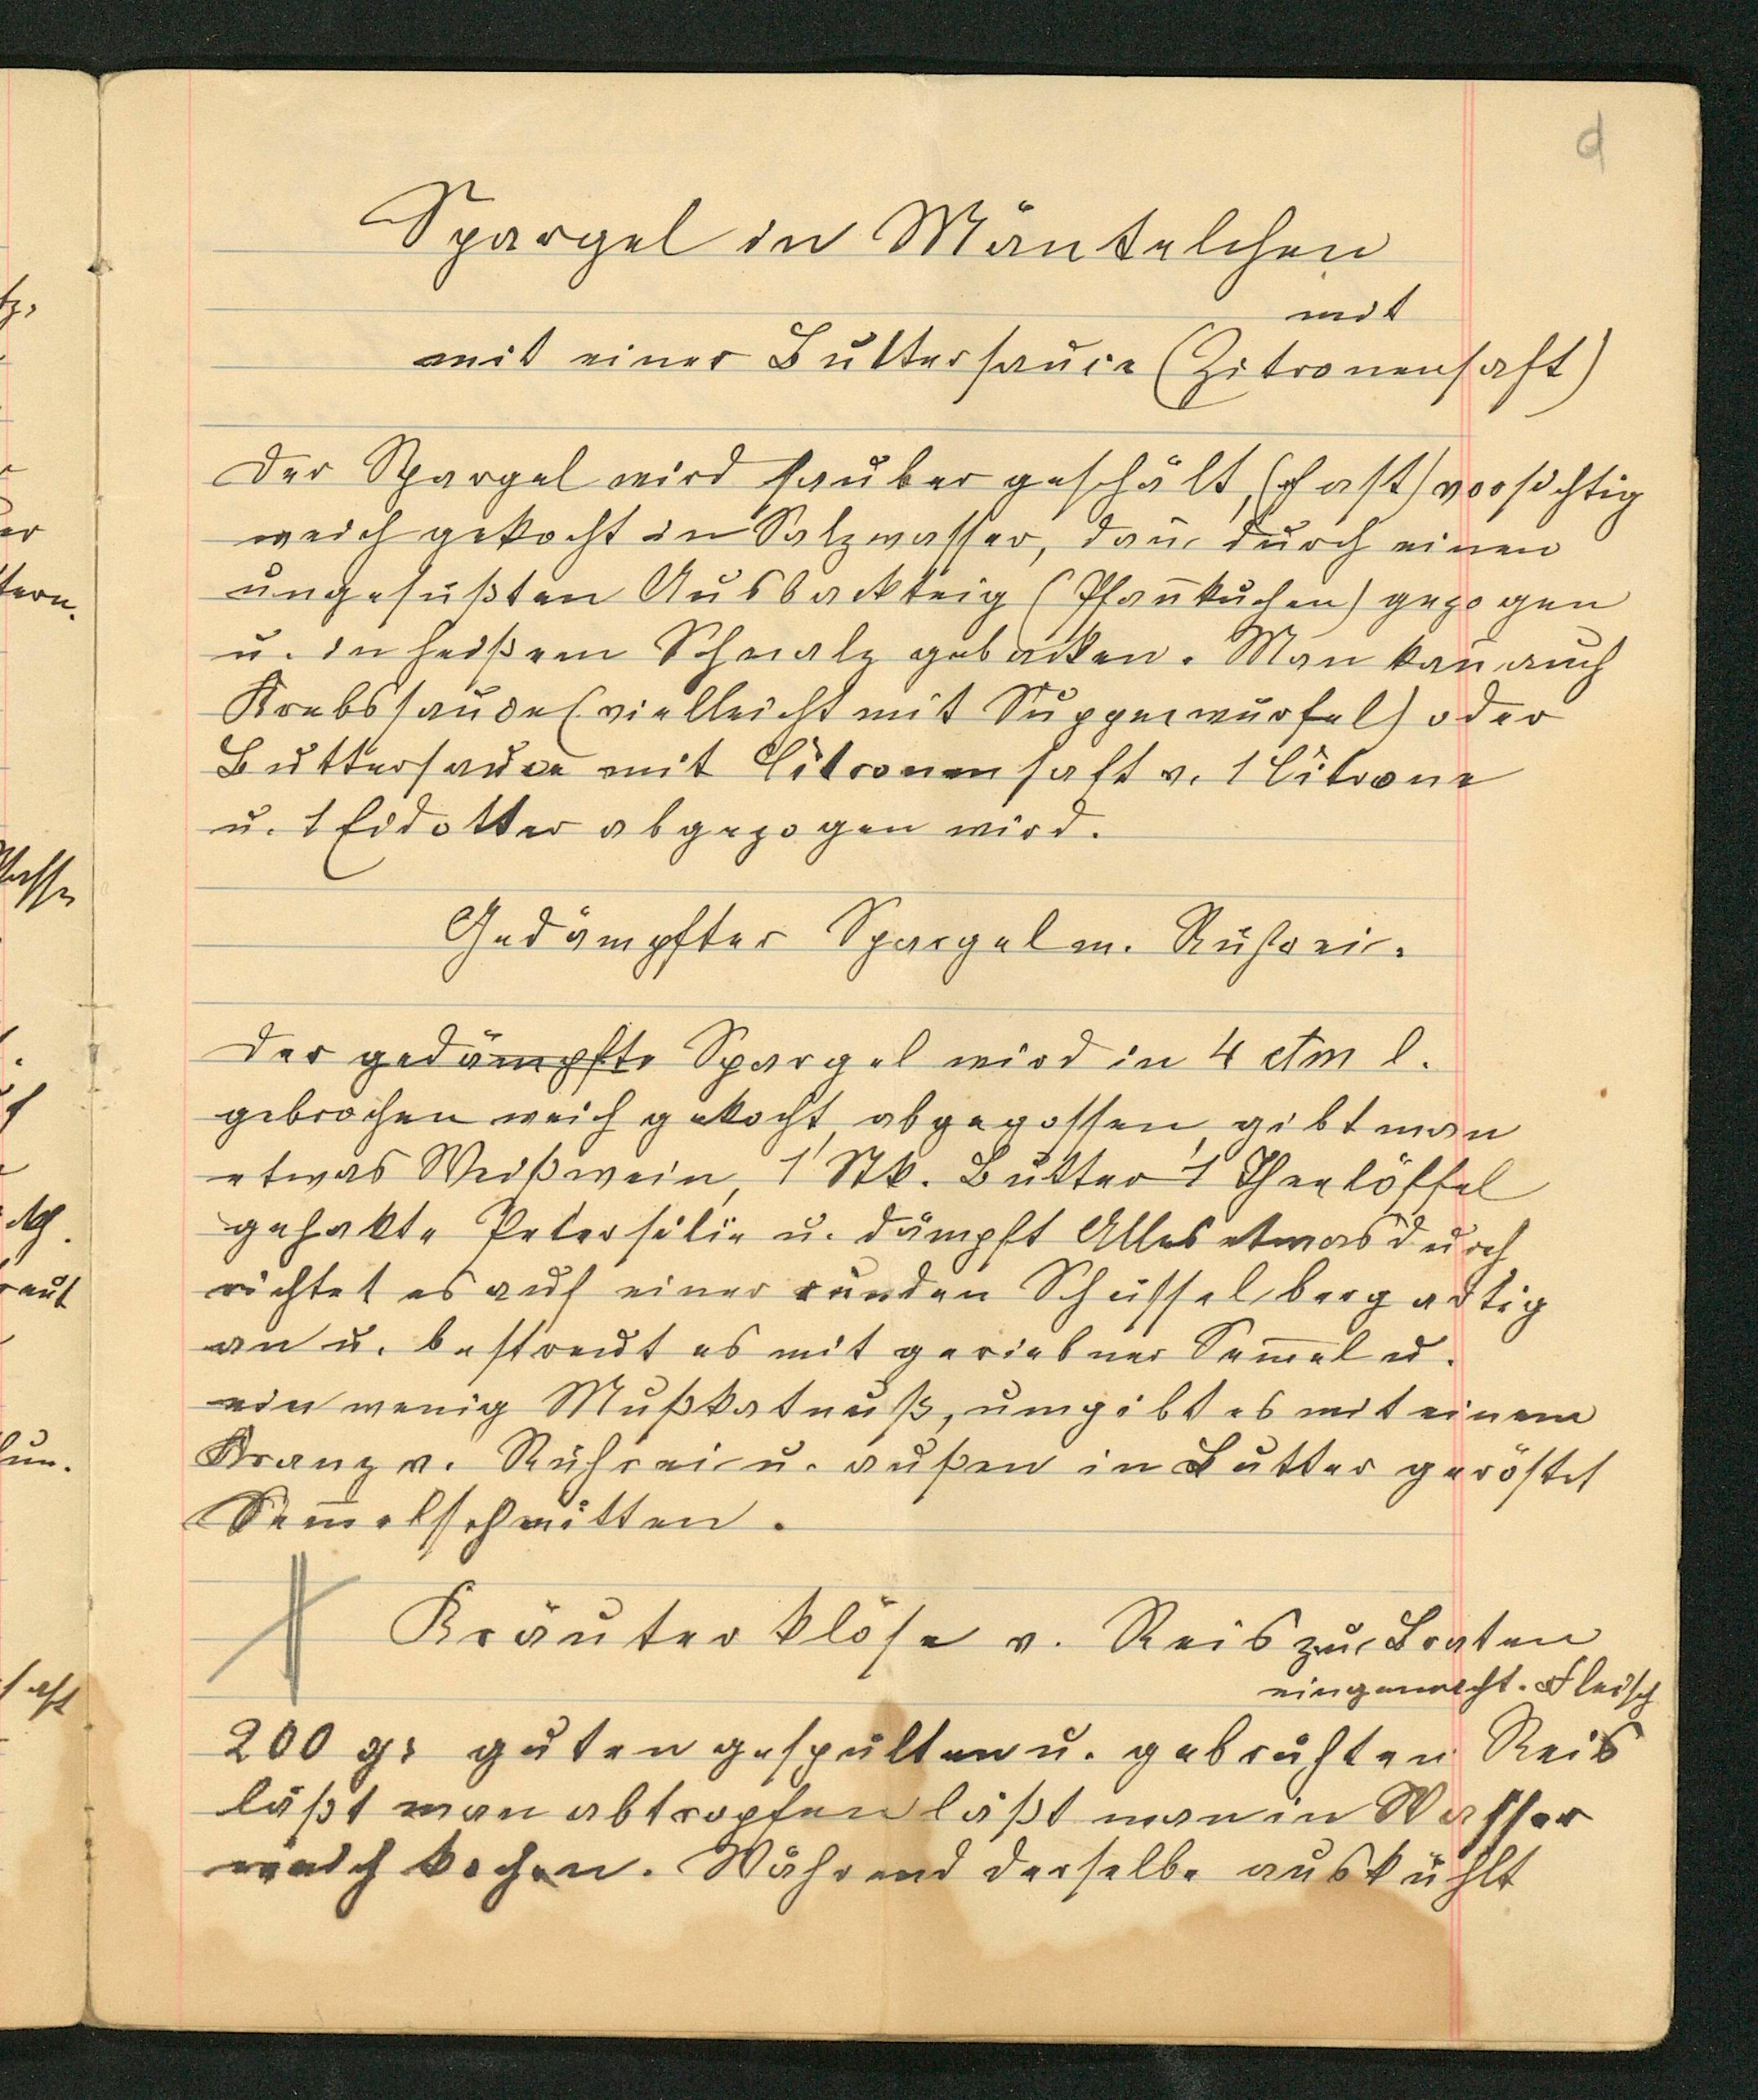 d
Spargel in Mäntelchen
mit
mit einer Buttersauce (Zitronensaft)
Der Spargel wird sauber geschält, (fast) vorsichtig
weich gekocht in Salzwasser, dan̄ durch einen
ungesüßten Ausbackteig (Pfan̄kuchen) gezogen
u. in heißem Schmalz gebacken. Man kan̄ auch
Krebssauce (vielleicht mit Suppenwürfel) oder
Buttersauce mit Citronensaft v. 1 Citrone
u. 1 Eidotter abgezogen wird.
Gedämpfter Spargel m. Rührei.
Der gedämpfte Spargel wird in 4 ctm l.
gebrochen weich gekocht, abgegossen, gibt man
etwas Weißwein, 1 Stk. Butter 1 Theelöffel
gehakte Petersilie u. dämpft Alles etwas durch
richtet es auf einer runden Schüssel bergartig
an u. bestreut es mit geriebner Sem̄el u.
ein wenig Mußkatnuß, umgibt es mit einem
Kranz v. Rührei u. außen in Butter geröstet
Sem̄elschnitten.
Kräuterklöse v. Reis zu Braten
eingemacht. Fleisch
200 gr guten gespülten u. gebrühten Reis
läßt man abtropfen läßt man in Wasser
weich kochen. Während derselbe auskühlt
tz.
er
tern.
auf
un.
saft